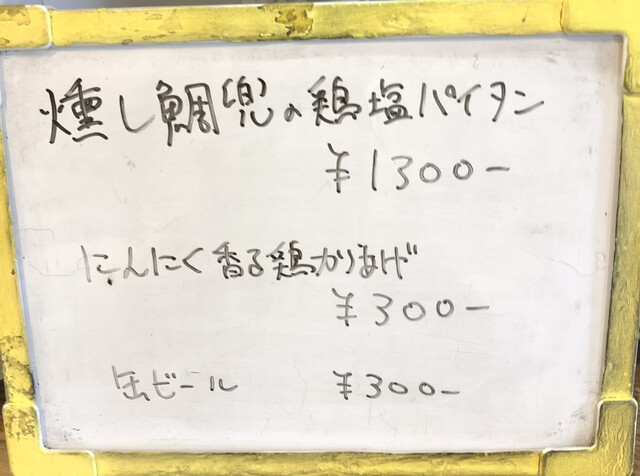 燻し鯛(兜)の鶏塩パイタン
¥1300-
にんにく香る鶏からあげ
¥300-
缶ビール ¥300-